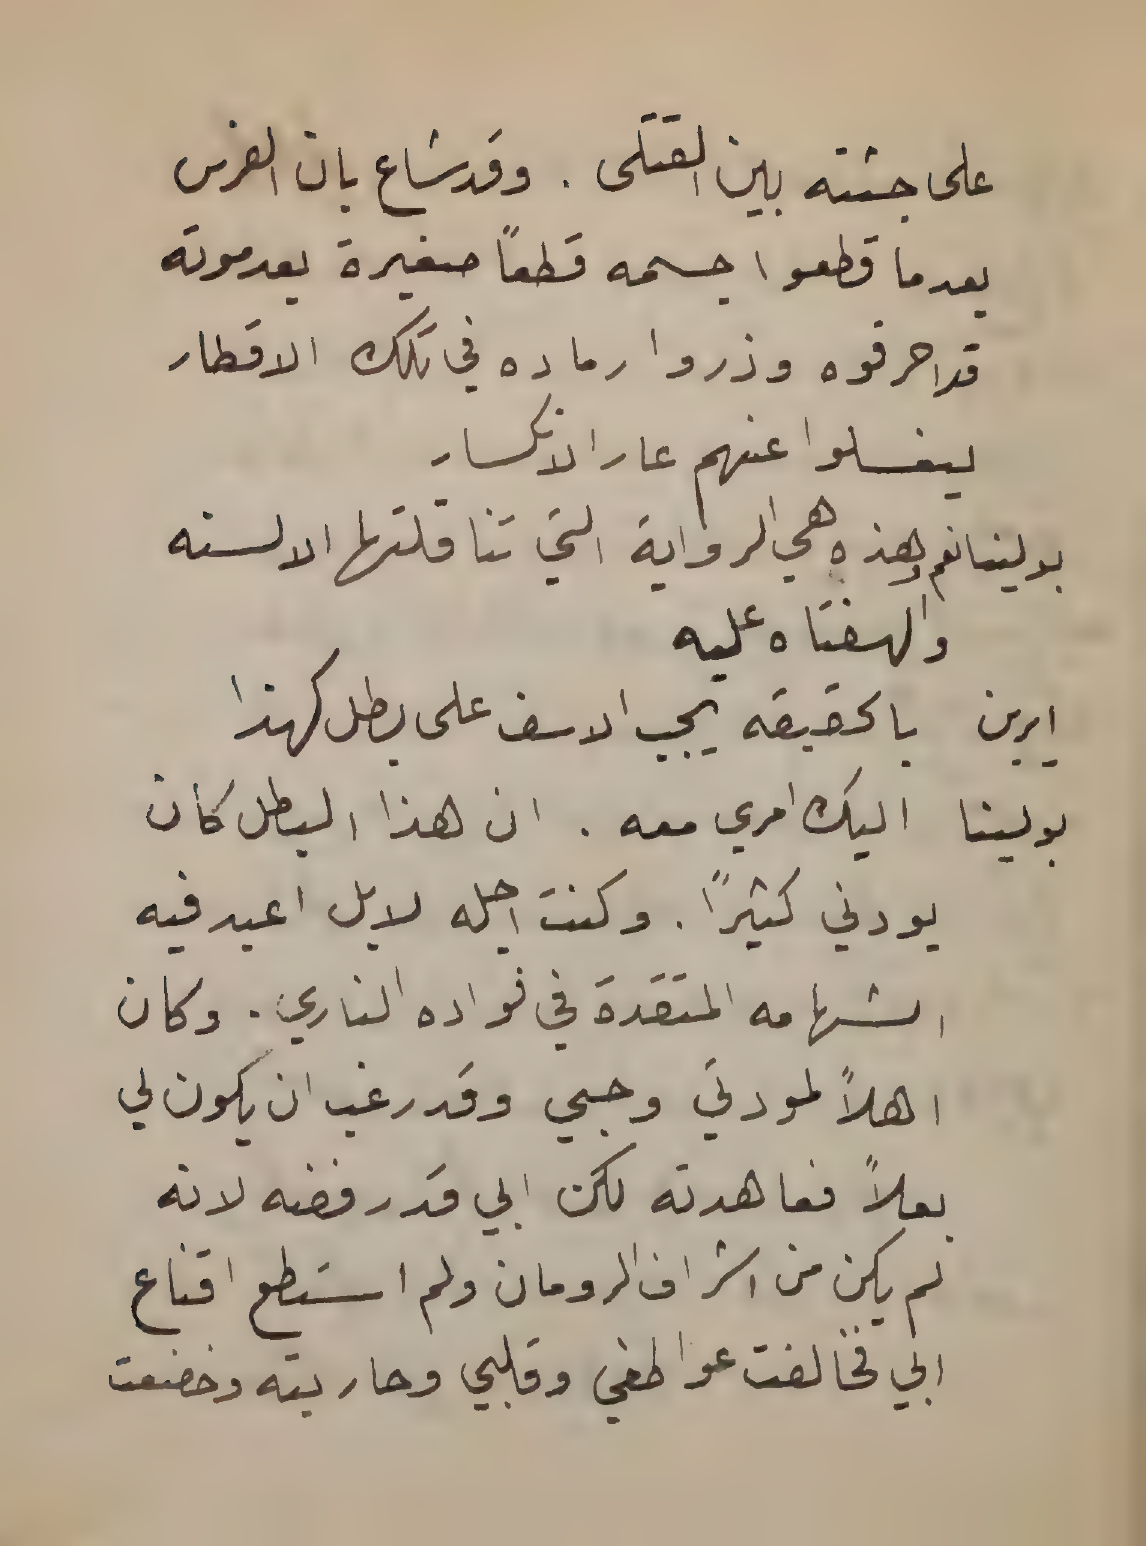 على جثته بين القتلى . وقد شاع بان الفرس
بعدما قطعوا جسمه قطعاً صغيرة بعد موته
قد احرقوه وذروا رماده في تلك الاقطار
ليغسلوا عنهم عار الانكسار
بولينا نعم وهذه هي الرواية التي تناقلتها الالسنه
والهفتاه عليه
ايرين بالحقيقه يجب الاسف على بطل كهذا
بولينا اليك امري معه . ان هذا البطل كان
يودني كثيراً . وكنت اجله لا بل اعبد فيه
الشهامه المتقدة في فواده الناري . وكان
اهلاً لمودتي وحبي وقد رغب ان يكون لي
بعلاً فعاهدته لكن ابي قد رفضه لانه
لم يكن من اشراف الرومان ولم استطع اقناع
ابي فخالفت عواطفي وقلبي وحاربته وخضعت